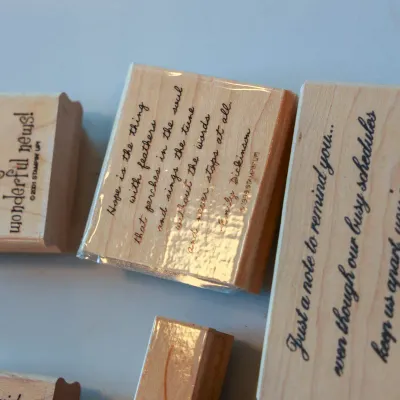 wonderful news!
© 2001 STAMPIN' UP!
Hope is the thing
with feathers
that perches in the soul
and sings the tune
without the words
and never stops at all.
Emily Dickinson
Just a note to remind you...
even though our busy schedules
keep us apart, you